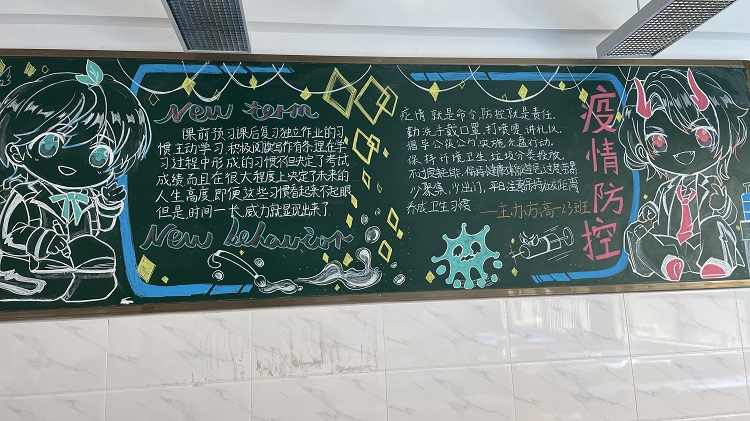 New term
课前预习课后复习独立作业的习
惯主动学习积极阅读写作背条理在学
习过程中形成的习惯不但决定了考试
成绩而且在很大程度上决定了未来的
人生高度即便这些习惯看起来不起眼
但是时间一长,威力就显现出来了
New behavior
疫情就是命令,防控就是责任.
勤洗手戴口罩,打喷嚏,讲礼仪.
倡导公筷公勺,实施光盘行动.
保持环境卫生,垃圾分类投放.
少聚集,少出门,平日注意保持社交距离
养成卫生习惯
——主办方高一23班
疫情防控